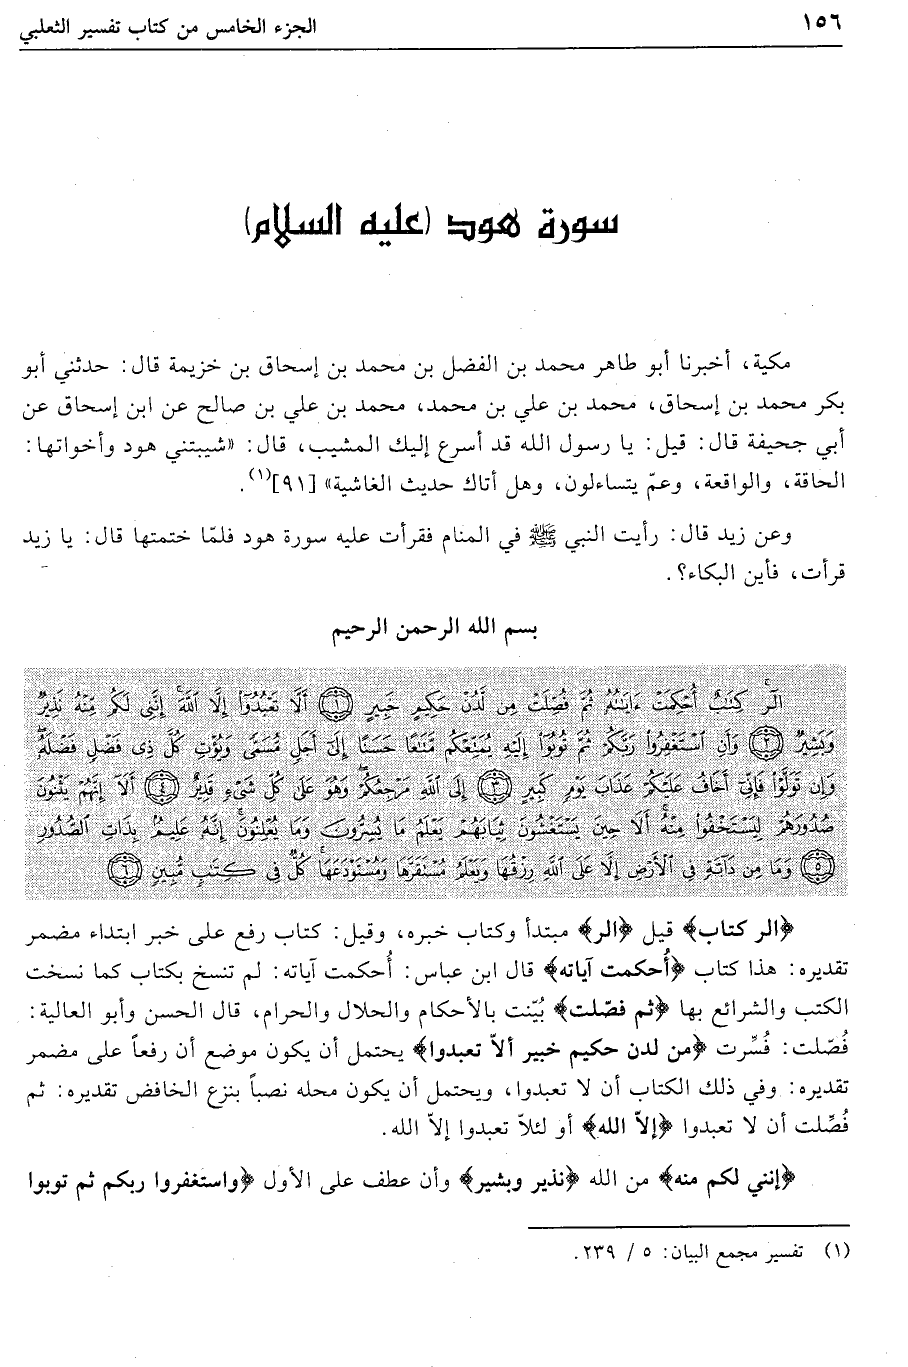 ١٥٦ الجزء الخامس من كتاب تفسير الثعلبي
سورة هود (عليه السلام)
مكية، أخبرنا أبو طاهر محمد بن الفضل بن محمد بن إسحاق بن خزيمة قال: حدثني أبو
بكر محمد بن إسحاق، محمد بن علي بن محمد، محمد بن علي بن صالح عن ابن إسحاق عن
أبي جحيفة قال: قيل: يا رسول الله قد أسرع إليك المشيب، قال: «شيبتني هود وأخواتها:
الحاقة، والواقعة، وعمّ يتساءلون، وهل أتاك حديث الغاشية» [٩١](١).
وعن زيد قال: رأيت النبي ﷺ في المنام فقرأت عليه سورة هود فلمّا ختمتها قال: يا زيد
قرأت، فأين البكاء؟.
بسم الله الرحمن الرحيم
الٓرۚ كِتَٰبٌ أُحْكِمَتْ ءَايَٰتُهُۥ ثُمَّ فُصِّلَتْ مِن لَّدُنْ حَكِيمٍ خَبِيرٍ ﴿١﴾ أَلَّا تَعْبُدُوٓا۟ إِلَّا ٱللَّهَۚ إِنَّنِى لَكُم مِّنْهُ نَذِيرٌ
وَبَشِيرٌ ﴿٢﴾ وَأَنِ ٱسْتَغْفِرُوا۟ رَبَّكُمْ ثُمَّ تُوبُوٓا۟ إِلَيْهِ يُمَتِّعْكُم مَّتَٰعًا حَسَنًا إِلَىٰٓ أَجَلٍ مُّسَمًّى وَيُؤْتِ كُلَّ ذِى فَضْلٍ فَضْلَهُۥۖ
وَإِن تَوَلَّوْا۟ فَإِنِّىٓ أَخَافُ عَلَيْكُمْ عَذَابَ يَوْمٍ كَبِيرٍ ﴿٣﴾ إِلَى ٱللَّهِ مَرْجِعُكُمْۖ وَهُوَ عَلَىٰ كُلِّ شَىْءٍ قَدِيرٌ ﴿٤﴾ أَلَآ إِنَّهُمْ يَثْنُونَ
صُدُورَهُمْ لِيَسْتَخْفُوا۟ مِنْهُۚ أَلَا حِينَ يَسْتَغْشُونَ ثِيَابَهُمْ يَعْلَمُ مَا يُسِرُّونَ وَمَا يُعْلِنُونَۚ إِنَّهُۥ عَلِيمٌۢ بِذَاتِ ٱلصُّدُورِ
﴿٥﴾ وَمَا مِن دَآبَّةٍ فِى ٱلْأَرْضِ إِلَّا عَلَى ٱللَّهِ رِزْقُهَا وَيَعْلَمُ مُسْتَقَرَّهَا وَمُسْتَوْدَعَهَاۚ كُلٌّ فِى كِتَٰبٍ مُّبِينٍ ﴿٦﴾
﴿الر كتاب﴾ قيل ﴿الر﴾ مبتدأ وكتاب خبره، وقيل: كتاب رفع على خبر ابتداء مضمر
تقديره: هذا كتاب ﴿أُحكمت آياته﴾ قال ابن عباس: أُحكمت آياته: لم تنسخ بكتاب كما نسخت
الكتب والشرائع بها ﴿ثم فصّلت﴾ بُيّنت بالأحكام والحلال والحرام، قال الحسن وأبو العالية:
فُصّلت: فُسِّرت ﴿من لدن حكيم خبير ألاّ تعبدوا﴾ يحتمل أن يكون موضع أن رفعاً على مضمر
تقديره: وفي ذلك الكتاب أن لا تعبدوا، ويحتمل أن يكون محله نصباً بنزع الخافض تقديره: ثم
فُصِّلت أن لا تعبدوا ﴿إلاّ الله﴾ أو لئلاّ تعبدوا إلاّ الله.
﴿إنني لكم منه﴾ من الله ﴿نذير وبشير﴾ وأن عطف على الأول ﴿واستغفروا ربكم ثم توبوا
(١) تفسير مجمع البيان: ٥ / ٢٣٩.